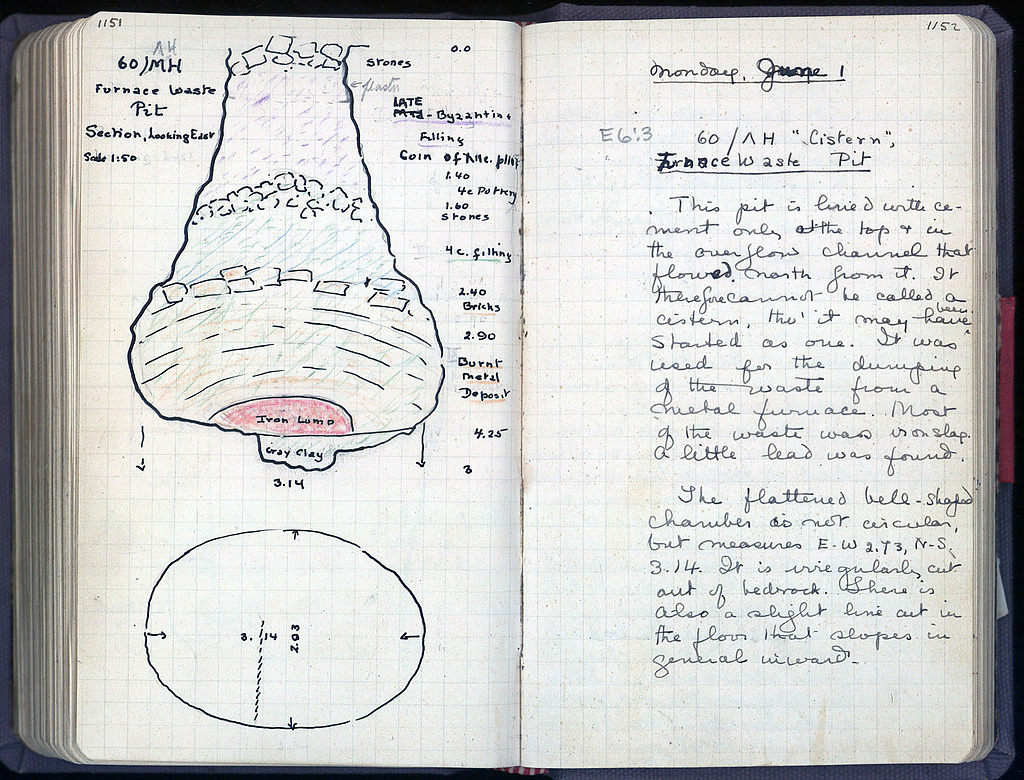 1151
ΛH
60/MH
Furnace Waste
Pit
Section, Looking East
Scale 1:50
0.0
Stones
plaster
LATE
Mid - Byzantine
Filling
Coin of
1.40
4c Pottery
1.60
Stones
4 c. filling
2.40
Bricks
2.90
Burnt
metal
Deposit
4.25
3
Iron Lump
Gray Clay
3.14
3.14
2.93
1152
Monday, June 1
E6:3
60/ΛH "Cistern",
Furnace Waste Pit
This pit is lined with ce-
ment only at the top & in
the overflow channel that
flowed north from it. It
therefore cannot be called a
cistern, tho' it may have been
started as one. It was
used for the dumping
of the waste from a
metal furnace. Most
of the waste was iron slag.
A little lead was found.
The flattened bell-shaped
chamber is not circular,
but measures E-W 2.93, N-S.
3.14. It is irregularly cut
out of bedrock. There is
also a slight line cut in
the floor that slopes in
general inward.